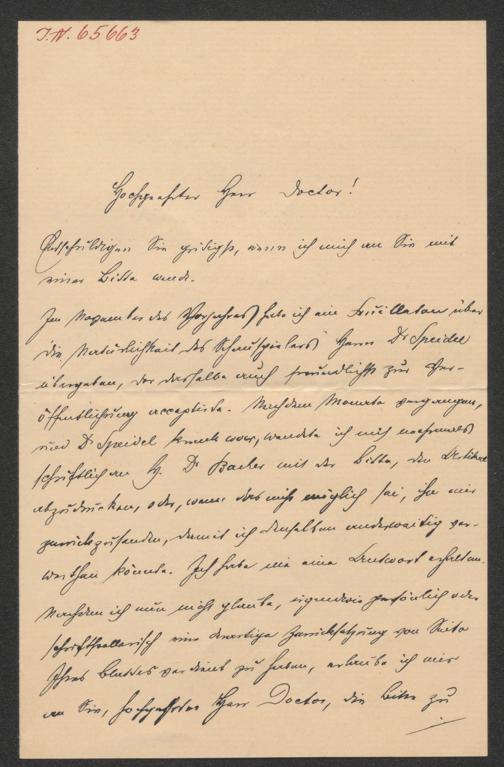 I.N. 65663
Hochgeehrter Herr Doctor!
Entschuldigen Sie gütigst, wenn ich mich an Sie mit
einer Bitte wende.
Im November des Vorjahres habe ich ein Feuilleton über
die Natürlichkeit des Schauspielers Herrn Dr Speidel
übergeben, der dasselbe auch freundlichst zur Ver-
öffentlichung acceptirte. Nachdem Monate vergangen,
und Dr Speidel krank war, wandte ich mich nochmals
schriftlich an H. Dr Bacher mit der Bitte, den Artikel
abzudrucken, oder, wenn das nicht möglich sei, ihn mir
zurückzusenden, damit ich denselben anderweitig ver-
werthen könnte. Ich habe nie eine Antwort erhalten.
Nachdem ich nun nicht glaube, irgendwie persönlich oder
schriftstellerisch eine derartige Zurücksetzung von Seite
Ihres Blattes verdient zu haben, erlaube ich mir
an Sie, hochgeehrter Herr Doctor, die Bitte zu